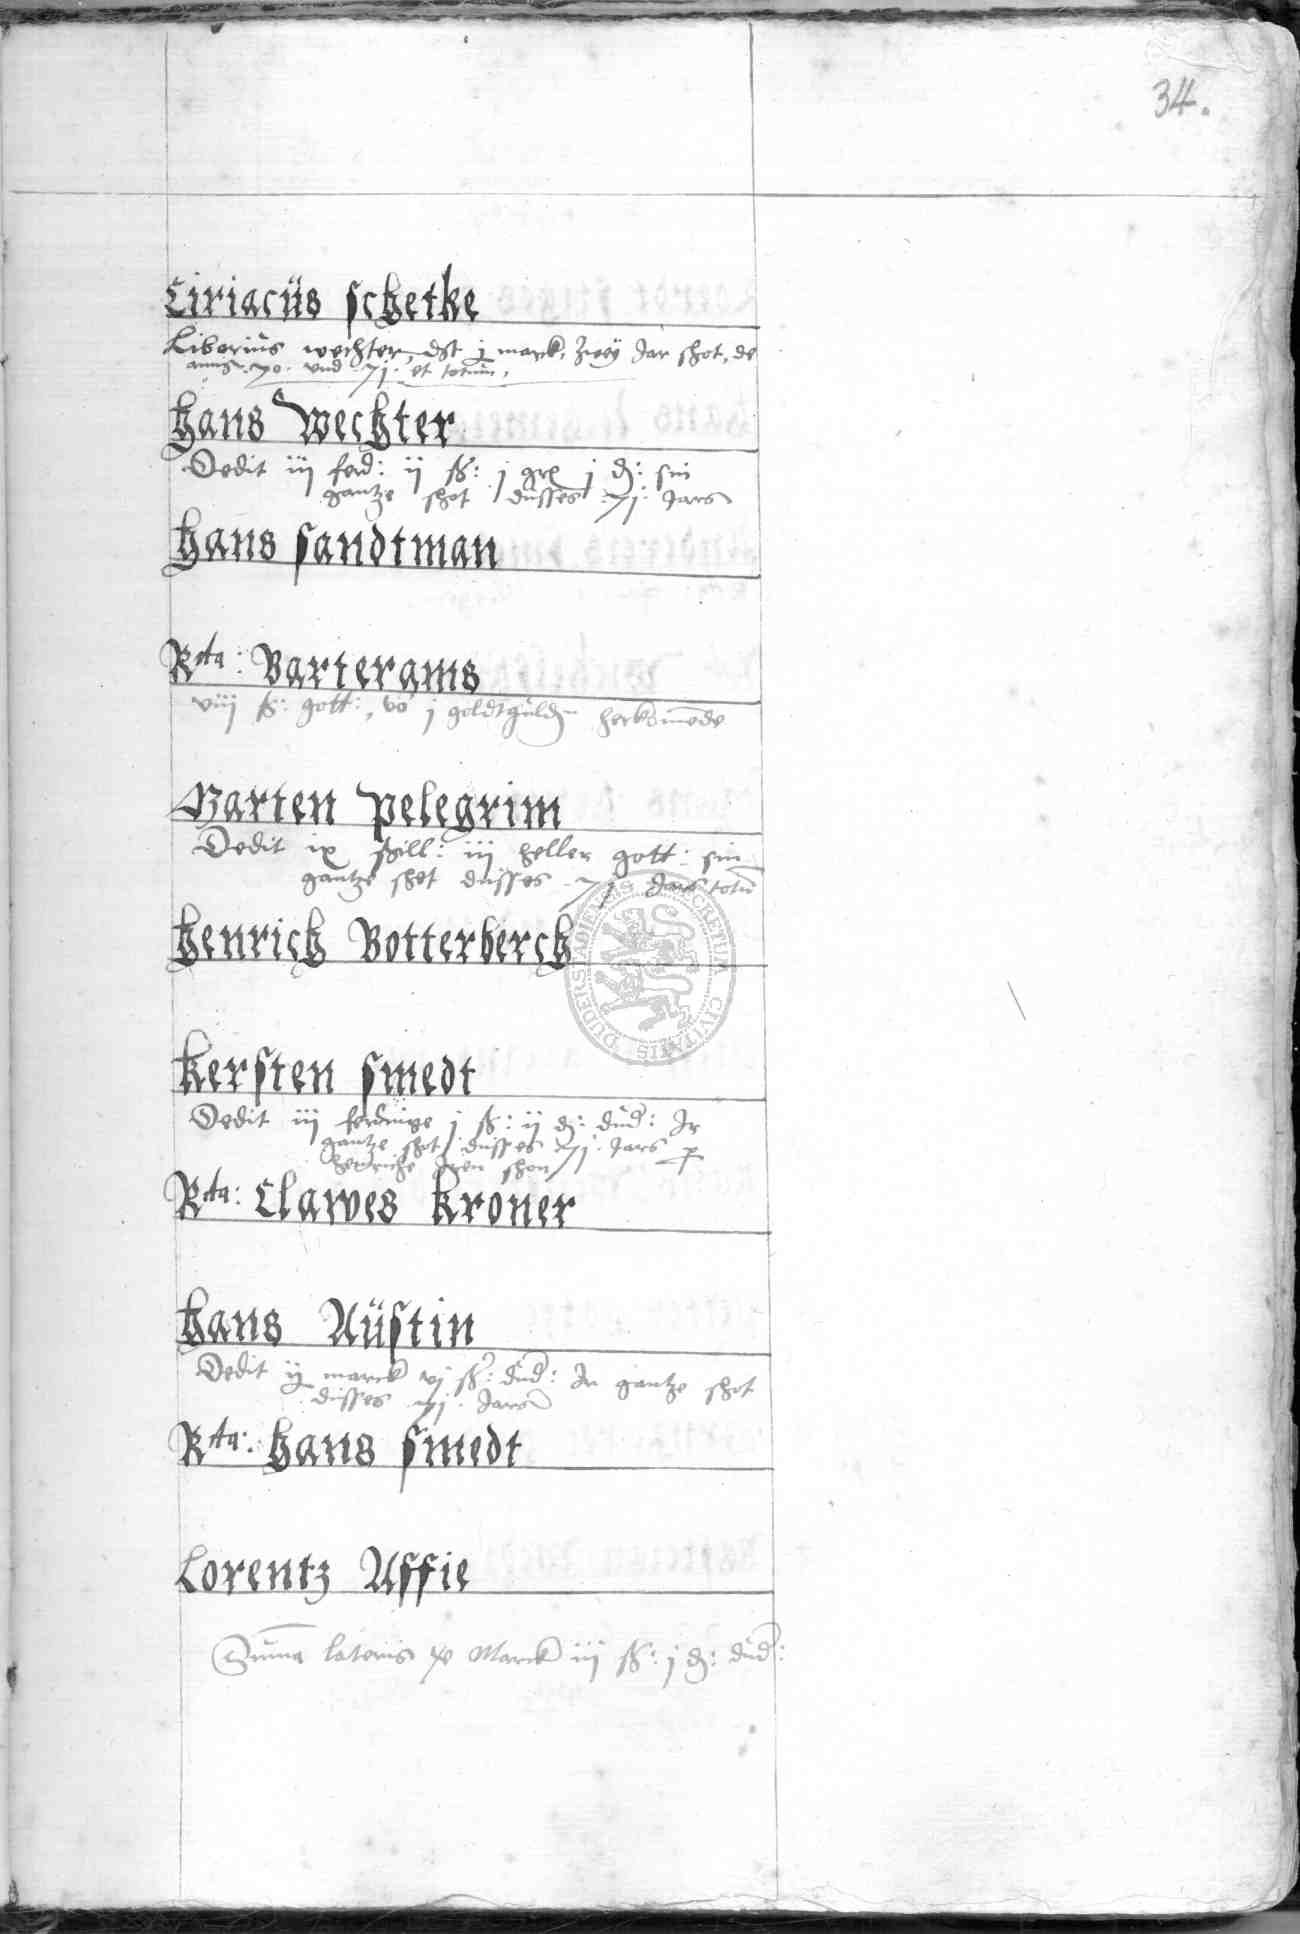 34.
Ciriacüs schetke
Liberius wechter, dt j marck, zwey Jar shot, de
anno 70 und 71 et totum,
Hans Wechter
Dedit iij ferd: ij ß: j gr j d: sin
gantze shot dusses 71 Jars
Hans sandtman
Rcta: Barterams
viij ß: gott:, vo j goldtguld herkomede
Marten Pelegrim
Dedit ix ßill: iij heller gott: sin
gantze shot dusses 71 Jars totu
Henrich Botterberch
Kersten smedt
Dedit iij ferdinge j ß: ij d: dud: Jr
gantze shot dusses 71 Jars
Jren shon
Rcta: Clawes Kroner
Hans Aüstin
Dedit ij marck vj ß: dud: Jr gantze shot
dusses 71 Jars
Rcta: Hans smedt
Lorentz Assie
Suma lateris Marck iij ß: j d: dud:
SECRETUM CIVITATIS DUDERSTADIENSIS